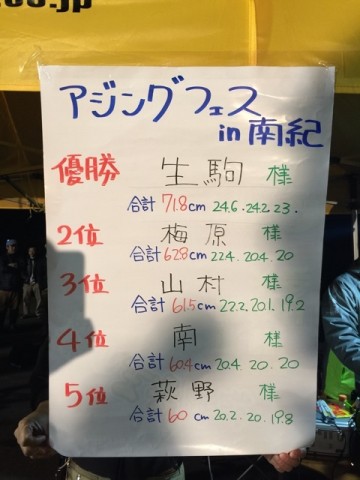 アジングフェス
in 南紀
優勝 生駒 様
合計 71.8cm 24.6. 24.2. 23.
2位 梅原 様
合計 62.8cm 22.4. 20.4. 20
3位 山村 様
合計 61.5cm 22.2. 20.1. 19.2
4位 南 様
合計 60.4cm 20.4. 20. 20
5位 萩野 様
合計 60 cm 20.2. 20. 19.8